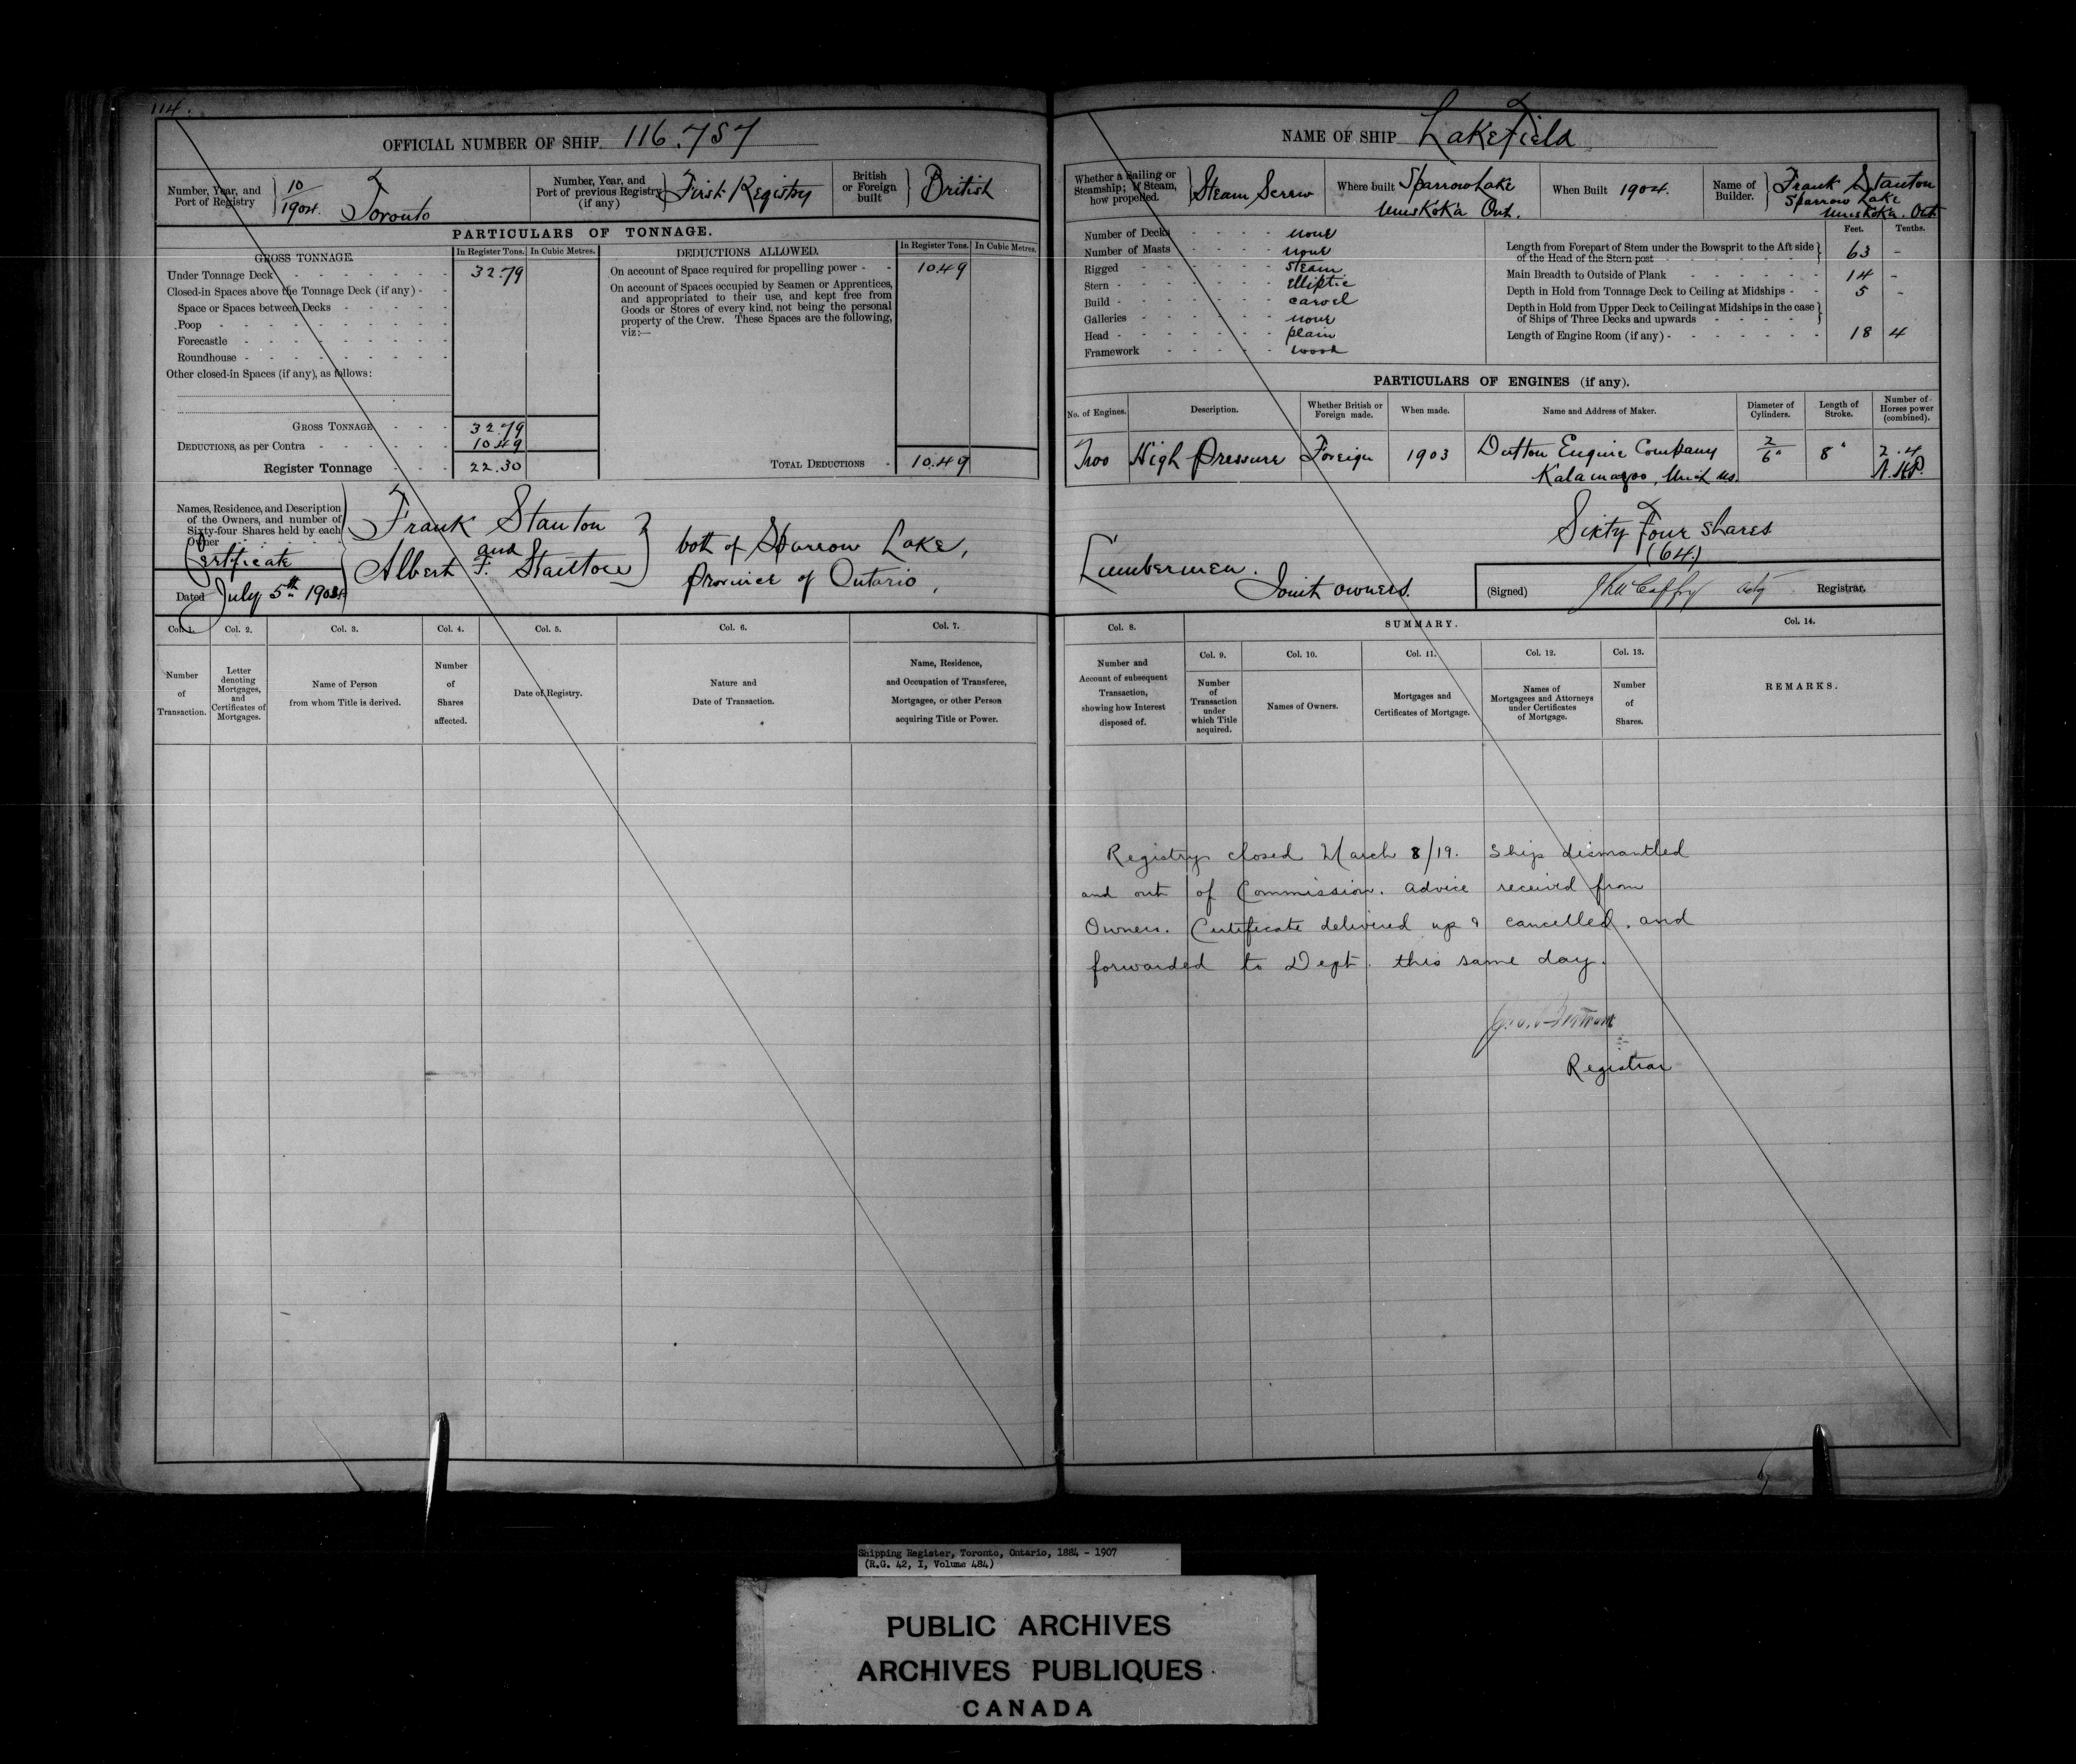 114.
OFFICIAL NUMBER OF SHIP 116.757
Number, Year, and Port of Registry 10/1904. Toronto
Number, Year, and Port of previous Registry (if any) First Registry
British or Foreign built British
PARTICULARS OF TONNAGE.
GROSS TONNAGE. In Register Tons. In Cubic Metres.
Under Tonnage Deck 32.79
Closed-in Spaces above the Tonnage Deck (if any)
Space or Spaces between Decks
Poop
Forecastle
Roundhouse
Other closed-in Spaces (if any), as follows:
GROSS TONNAGE 32.79
DEDUCTIONS, as per Contra 10.49
Register Tonnage 22.30
DEDUCTIONS ALLOWED. In Register Tons. In Cubic Metres.
On account of Space required for propelling power 10.49
On account of Spaces occupied by Seamen or Apprentices,
and appropriated to their use, and kept free from
Goods or Stores of every kind, not being the personal
property of the Crew. These Spaces are the following,
viz:—
TOTAL DEDUCTIONS 10.49
Names, Residence, and Description
of the Owners, and number of
Sixty-four Shares held by each
Owner
Certificate
Dated July 5th 1904
Frank Stanton
and
Albert F. Stanton
both of Sparrow Lake,
Province of Ontario,
Col. 1. Col. 2. Col. 3. Col. 4. Col. 5. Col. 6. Col. 7.
Number of Transaction.
Letter denoting Mortgages, and Certificates of Mortgages.
Name of Person from whom Title is derived.
Number of Shares affected.
Date of Registry.
Nature and Date of Transaction.
Name, Residence, and Occupation of Transferee, Mortgagee, or other Person acquiring Title or Power.
NAME OF SHIP Lakefield
Whether a Sailing or Steamship; If Steam, how propelled. Steam Screw
Where built Sparrow Lake
Muskoka Ont.
When Built 1904.
Name of Builder. Frank Stanton
Sparrow Lake
Muskoka. Ont.
Number of Decks none
Number of Masts none
Rigged steam
Stern elliptic
Build carvel
Galleries none
Head plain
Framework wood
Feet. Tenths.
Length from Forepart of Stem under the Bowsprit to the Aft side
of the Head of the Stern-post 63 –
Main Breadth to Outside of Plank 14 –
Depth in Hold from Tonnage Deck to Ceiling at Midships 5 –
Depth in Hold from Upper Deck to Ceiling at Midships in the case
of Ships of Three Decks and upwards
Length of Engine Room (if any) 18 4
PARTICULARS OF ENGINES (if any).
No. of Engines. Description. Whether British or Foreign made. When made. Name and Address of Maker. Diameter of Cylinders. Length of Stroke. Number of Horses power (combined).
Two High Pressure Foreign 1903 Dutton Engine Company 2/6" 8" 2.4
Kalamazoo, Mich us. N.H.P.
Sixty Four Shares
(64)
Lumbermen.
Joint owners.
(Signed) Actg Registrar.
Col. 8. SUMMARY. Col. 14.
Col. 9. Col. 10. Col. 11. Col. 12. Col. 13.
Number and Account of subsequent Transaction, showing how Interest disposed of.
Number of Transaction under which Title acquired.
Names of Owners.
Mortgages and Certificates of Mortgage.
Names of Mortgagees and Attorneys under Certificates of Mortgage.
Number of Shares.
REMARKS.
Registry closed March 8/19. Ship dismantled
and out of Commission. advice received from
Owners. Certificate delivered up & cancelled, and
forwarded to Dept. this same day.
Registrar
Shipping Register, Toronto, Ontario, 1884 - 1907
(R.G. 42, I, Volume 484)
PUBLIC ARCHIVES
ARCHIVES PUBLIQUES
CANADA